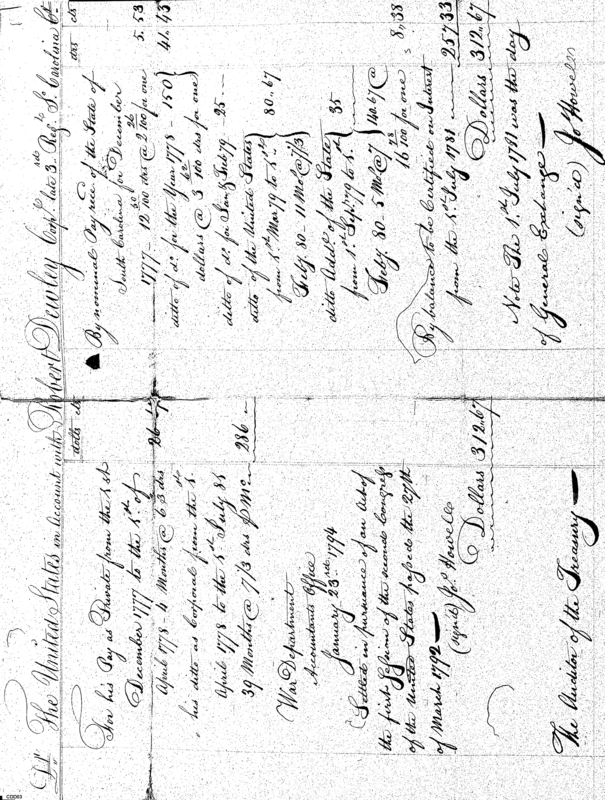 Dr. The United States in Account with Robert Dewley Corpl. late 3rd. Regt. So. Carolina Cr.
dolls cts
For his Pay as Private from the 1st
December 1777 to the 1st of
April 1778 - 4 Months @ 6 2/3 drs 26..67
his ditto as Corporal from the 1st.
April 1778 to the 1st July 81
39 Months @ 7 1/3 drs P Mo. 286 -
War Department
Accountants Office
January 23rd. 1794
Settled in pursuance of an Act of
the first Session of the second Congress
of the United States passed the 27th
of March 1792 —
(signed) Jo. Howell
Dollars 312.67
The Auditor of the Treasury —
drs cts
By nominal Pay rec'd of the State of
South Carolina for December
1777 - @ for one 5.53
ditto of do. for the Year 1778 - 150
dollars @ 3 100 drs for one 41.45
ditto of do. for Jany & Feby 79 - 25 —
ditto of the United States
from 1st Mar 79 to 1st
Feby. 80 - 11 Mos @ 7 1/3 80..67
ditto Addl. of the State
from 1st. Sept. 79 to 1st. 35
Feby. 80 - 5 Mos @ 7
140.67 @
for one 8,38
By balance to be Certified on Interest
from the 1st. July 1781 — 257 33
Dollars 312.67
Note The 1st. July 1781 was the day
of General Exchange —
(signed) Jo Howell
CDD63